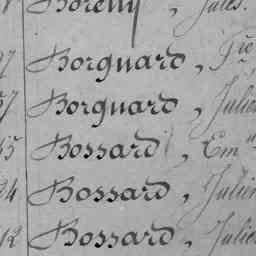 Borelly, Jules.
Borguard, Fie
Borguard, Julie
Bossard, Em
Bossard, Julie
12 Bossard, Julie